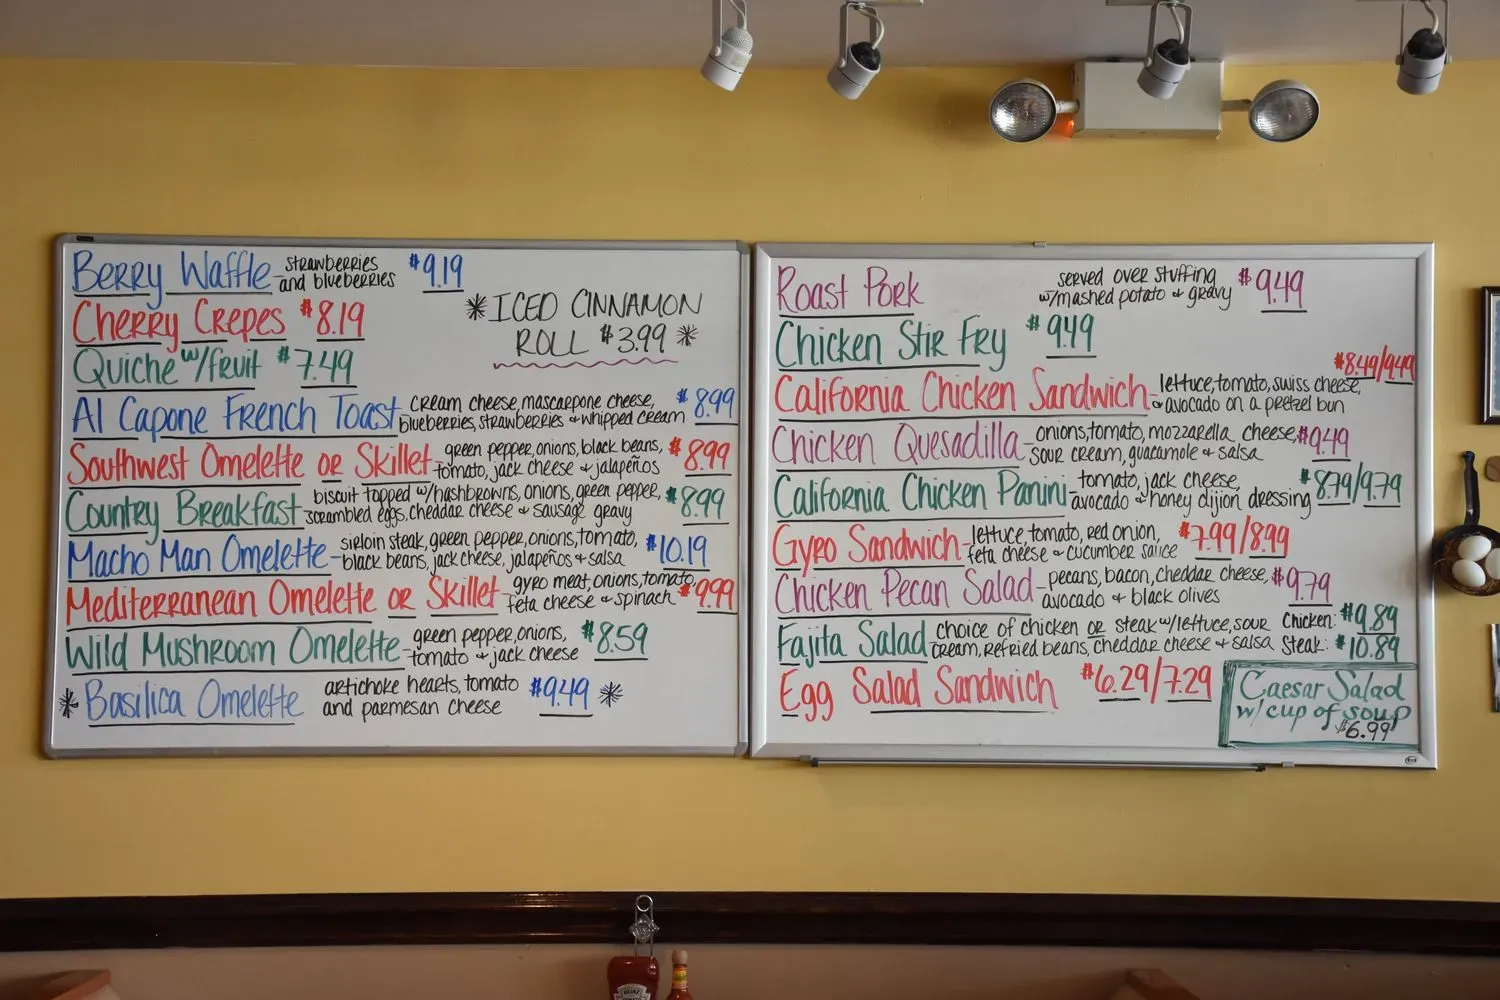 Berry Waffle - strawberries and blueberries $9.19
Cherry Crepes $8.19
*ICED CINNAMON
ROLL $3.99 *
Quiche w/fruit $7.49
Al Capone French Toast - cream cheese, mascarpone cheese, $8.99
blueberries, strawberries & whipped cream
Southwest Omelette or Skillet - green pepper, onions, black beans, $8.99
tomato, jack cheese & jalapeños
Country Breakfast - biscuit topped w/hashbrowns, onions, green pepper, $8.99
scrambled eggs, cheddar cheese & sausage gravy
Macho Man Omelette - sirloin steak, green pepper, onions, tomato, $10.19
black beans, jack cheese, jalapeños & salsa
Mediterranean Omelette or Skillet - gyro meat, onions, tomato, $9.99
feta cheese & spinach
Wild Mushroom Omelette - green pepper, onions, $8.59
tomato & jack cheese
* Basilica Omelette artichoke hearts, tomato $9.49 *
and parmesan cheese
Roast Pork served over stuffing $9.49
w/mashed potato & gravy
Chicken Stir Fry $9.49
California Chicken Sandwich - lettuce, tomato, swiss cheese, $8.49/9.49
& avocado on a pretzel bun
Chicken Quesadilla - onions, tomato, mozzarella cheese, $9.49
sour cream, guacamole & salsa
California Chicken Panini - tomato, jack cheese, $8.79/9.79
avocado & honey dijion dressing
Gyro Sandwich - lettuce, tomato, red onion, $7.99/8.99
feta cheese & cucumber sauce
Chicken Pecan Salad - pecans, bacon, cheddar cheese, $9.79
avocado & black olives
Fajita Salad - choice of chicken or steak w/lettuce, sour Chicken: $9.89
cream, refried beans, cheddar cheese & salsa Steak: $10.89
Egg Salad Sandwich $6.29/7.29
Caesar Salad
w/ cup of soup
$6.99
HEINZ